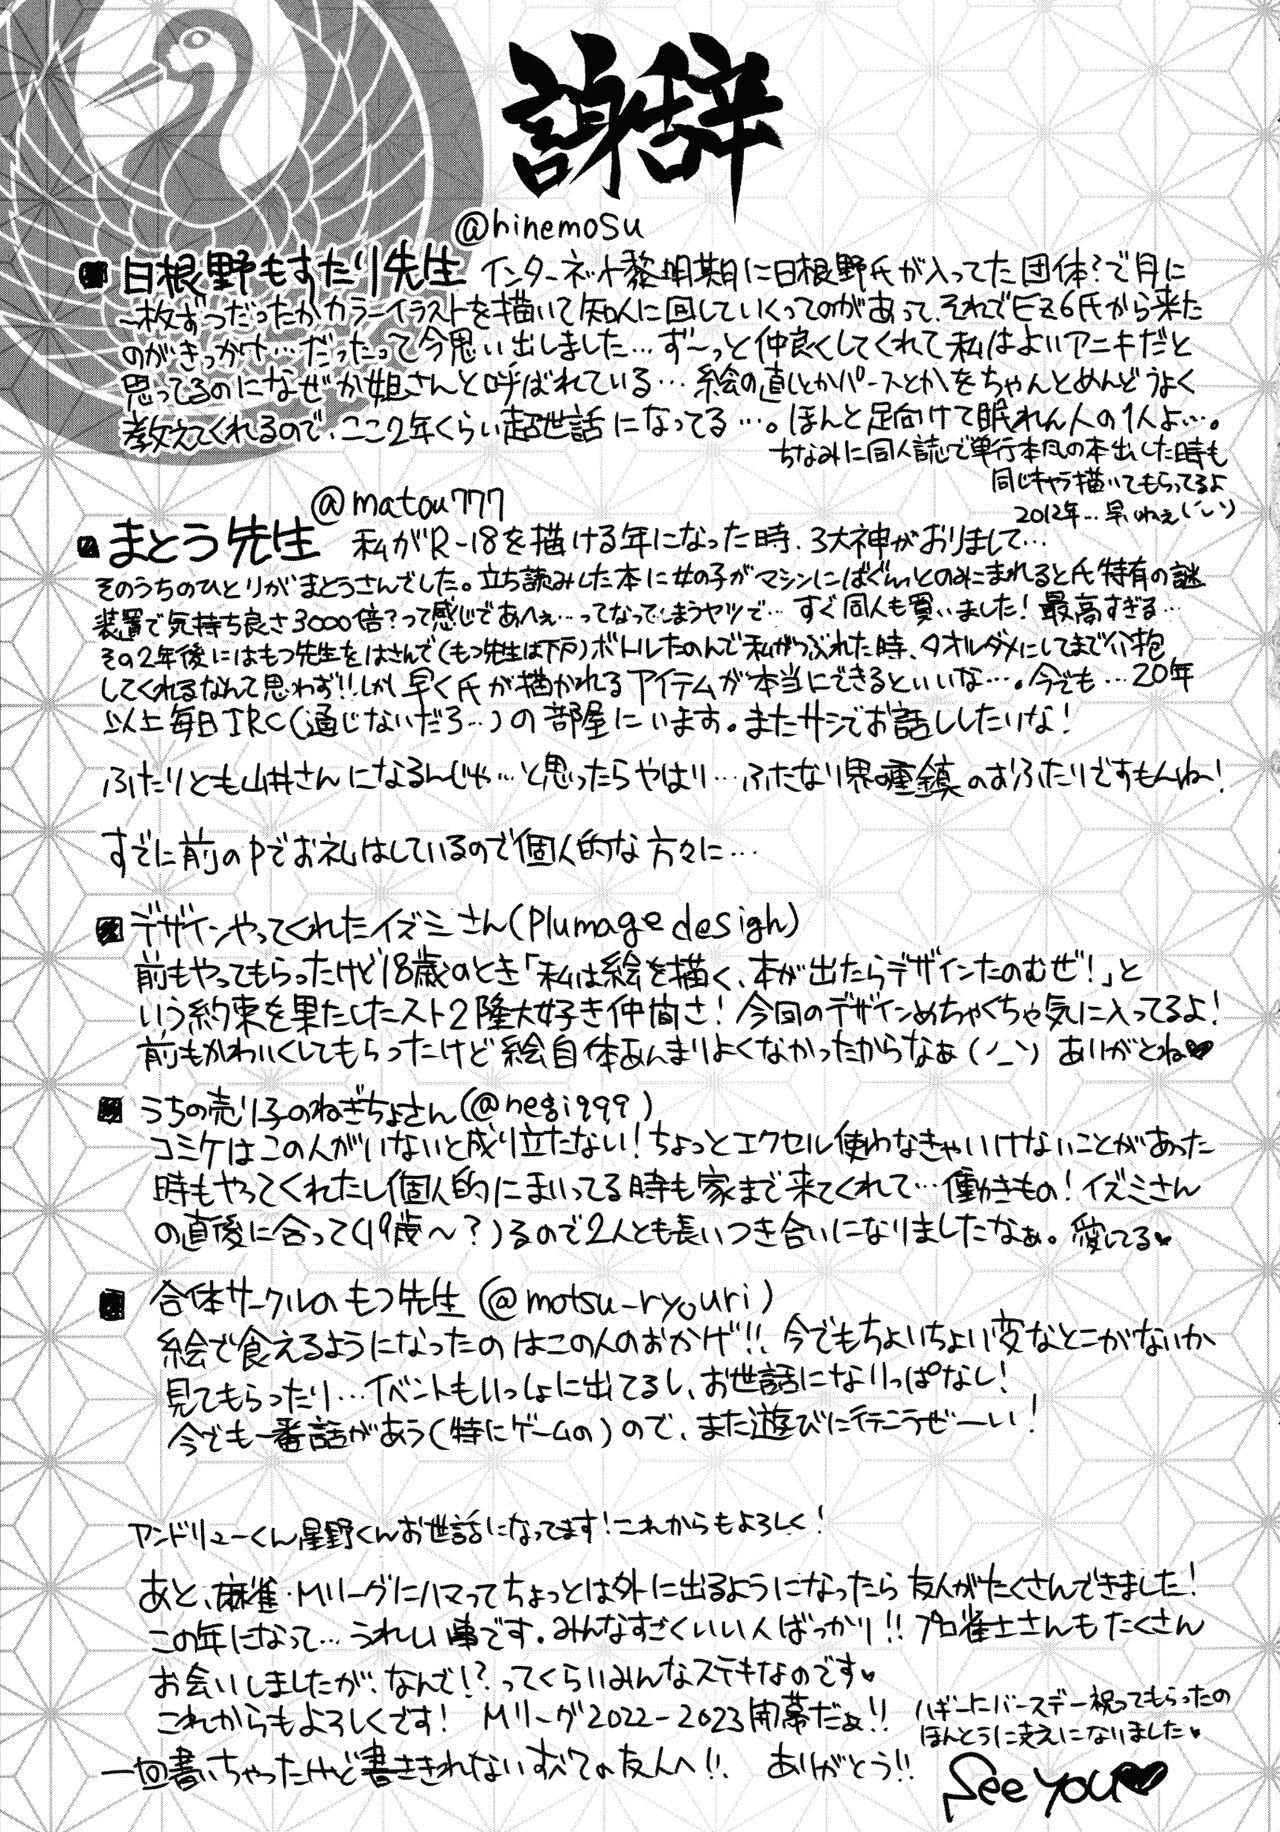 謝辞
@hinemosu
白根野もすたり先生 インターネット黎明期に白根野氏が入ってた団体?で月に
一枚ずつだったかカラーイラストを描いて知人に回していくってのがあって、それでEz6氏から来た
のがきっかけ…だったって今思い出しました…ず〜っと仲良くしてくれて私はよいアニキだと
思ってるのになぜか姐さんと呼ばれている…絵の直しとかパースとかをちゃんとめんどうよく
教えてくれるので、ここ2年くらい超世話になってる…。ほんと足向けて眠れん人の1人よ…。
ちなみに同人誌で単行本風の本出した時も
同じキャラ描いてもらってるよ
2012年…早いねぇ
@matou777
まとう先生 私がR-18を描ける年になった時、3大神がおりまして…
そのうちのひとりがまとうさんでした。立ち読みした本に女の子がマシンにばぐんっとのみこまれると氏特有の謎
装置で気持ち良さ3000倍?って感じであへぇ…ってなってしまうヤツで…すぐ同人も買いました!最高すぎる…
その2年後にはもつ先生をはさんで(もつ先生は下戸)ボトルたのんで私がつぶれた時、タオルダメにしてまで介抱
してくれるなんて思わず!!しかし早く氏が描かれるアイテムが本当にできるといいな…。今でも…20年
以上毎日IRC(通じないだろ…)の部屋にいます。またサシでお話ししたいな!
ふたりとも山井さんになるんじゃ…と思ったらやはり…ふたなり界の重鎮のおふたりですもんね〜!
すでに前のPでお礼はしているので個人的な方々に…
デザインやってくれたイズミさん(Plumage design)
前もやってもらったけど18歳のとき「私は絵を描く、本が出たらデザインたのむぜ!」と
いう約束を果たしたスト2隆大好き仲間さ!今回のデザインめちゃくちゃ気に入ってるよ!
前もかわいくしてもらったけど絵自体あんまりよくなかったからなぁ(ノ_ン)ありがとね♥
うちの売り子のねぎちょさん(@negi999)
コミケはこの人がいないと成り立たない!ちょっとエクセル使わなきゃいけないことがあった
時もやってくれたし個人的にまいってる時も家まで来てくれて…働きもの!イズミさん
の直後に合って(19歳〜?)るので2人とも長いつき合いになりましたなぁ。愛してる♥
合体サークルのもつ先生(@motsu_ryouri)
絵で食えるようになったのはこの人のおかげ!!今でもちょいちょい変なとこがないか
見てもらったり…イベントもいっしょに出てるし、お世話になりっぱなし!
今でも一番話があう(特にゲームの)ので、また遊びに行こうぜーい!
アンドリューくん星野くんお世話になってます!これからもよろしく!
あと、麻雀・Mリーグにハマってちょっとは外に出るようになったら友人がたくさんできました!
この年になって…うれしい事です。みんなすごくいい人ばっかり!!プロ雀士さんもたくさん
お会いしましたが、なんで!?ってくらいみんなステキなのです♥
これからもよろしくです! Mリーグ2022-2023開幕だぁ!!
バースデー祝ってもらったの
ほんとうに支えになりました♥
一回書いちゃったけど書ききれないすべての友人へ!! ありがとう!!
See you♥